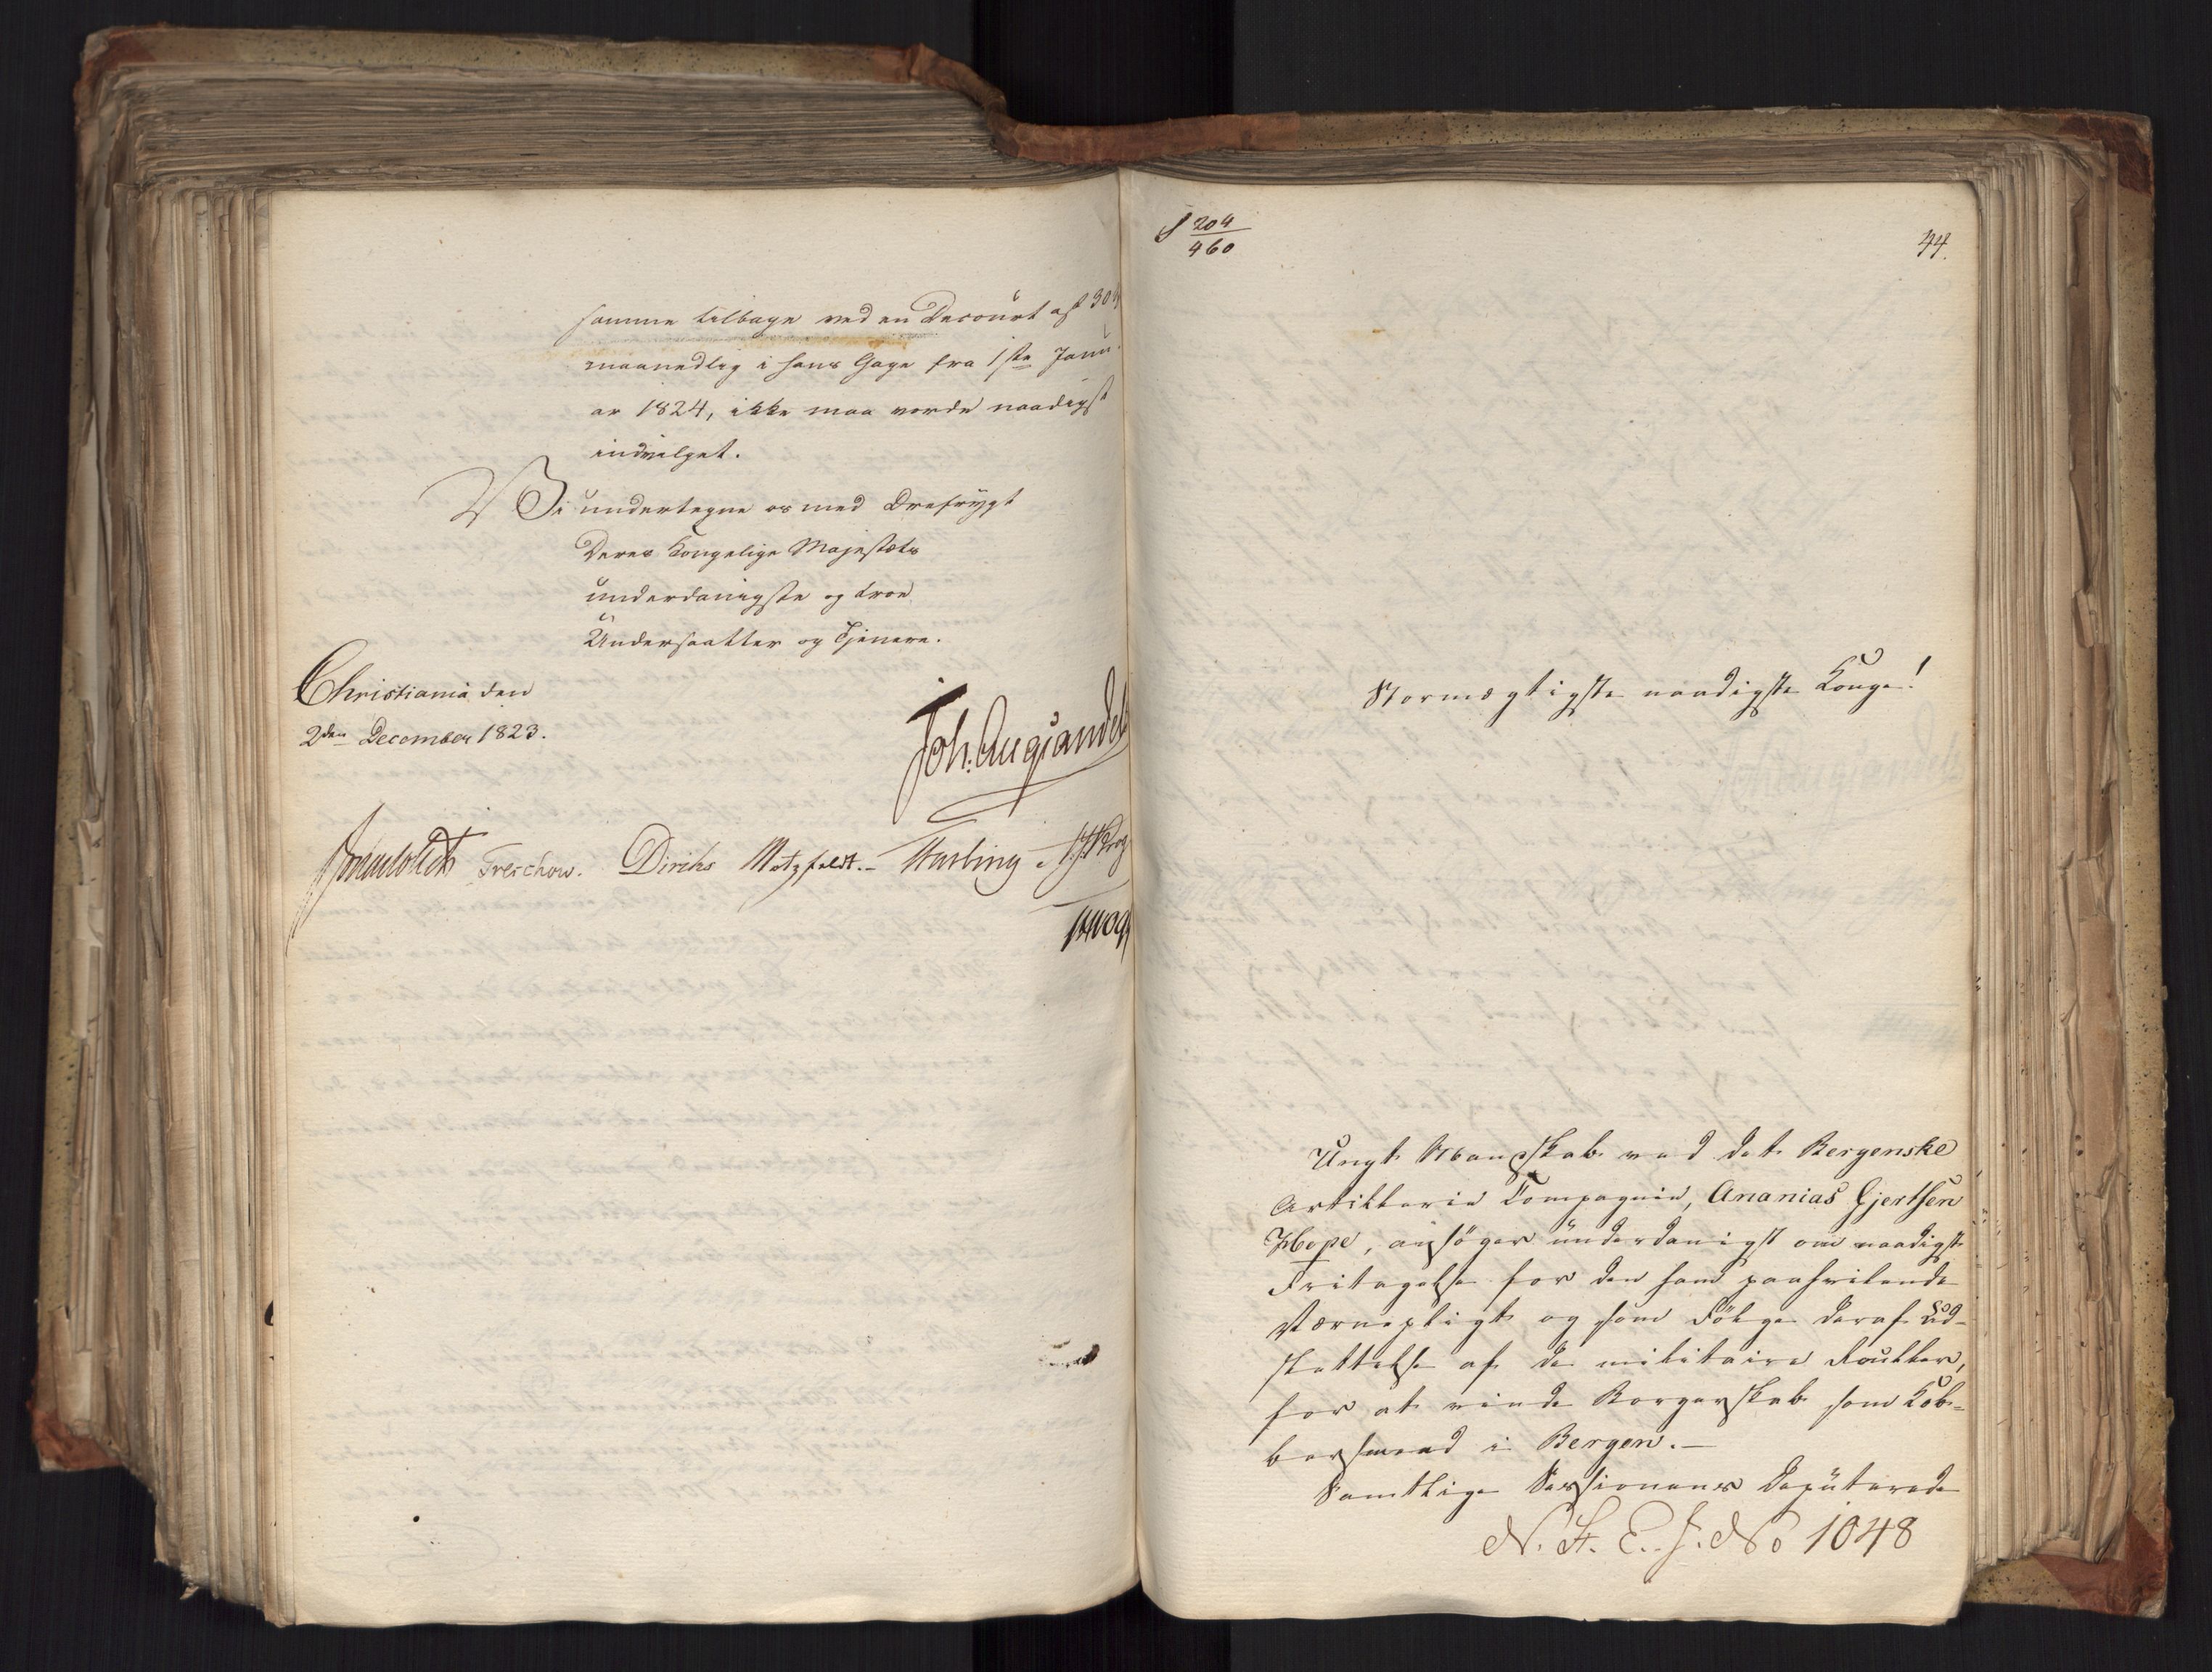 samme tilbage ved en Decourt af 30
maanedlig i hans Gage fra 1ste Janu-
ar 1824, ikke maa vorde naadigst
indvilget.
Vi undertegne os med Ærefrygt
Deres Kongelige Majestæts
underdanigste og troe
Undersaatter og Tjenere.
Christiania den
2den December 1823.
Joh. Aug. Sandels
Sommerhielm Treschow. Diriks Motzfeldt. Fasting J. H. Vogt
Krog
§ 204
460
44.
Stormægtigste naadigste Konge!
Ungt Mandskab ved det Bergenske
Artillerie Compagnie, Ananias Gjertsen
Hope, ansöger underdanigst om naadigst
Fritagelse for den ham paahvilende
Værnepligt og som Fölge deraf Ud-
slettelse af de militaire Rouller,
for at vinde Borgerskab som Kob-
bersmed i Bergen.—
Samtlige Sessionens Deputerede
N. F. E. J. No 1048